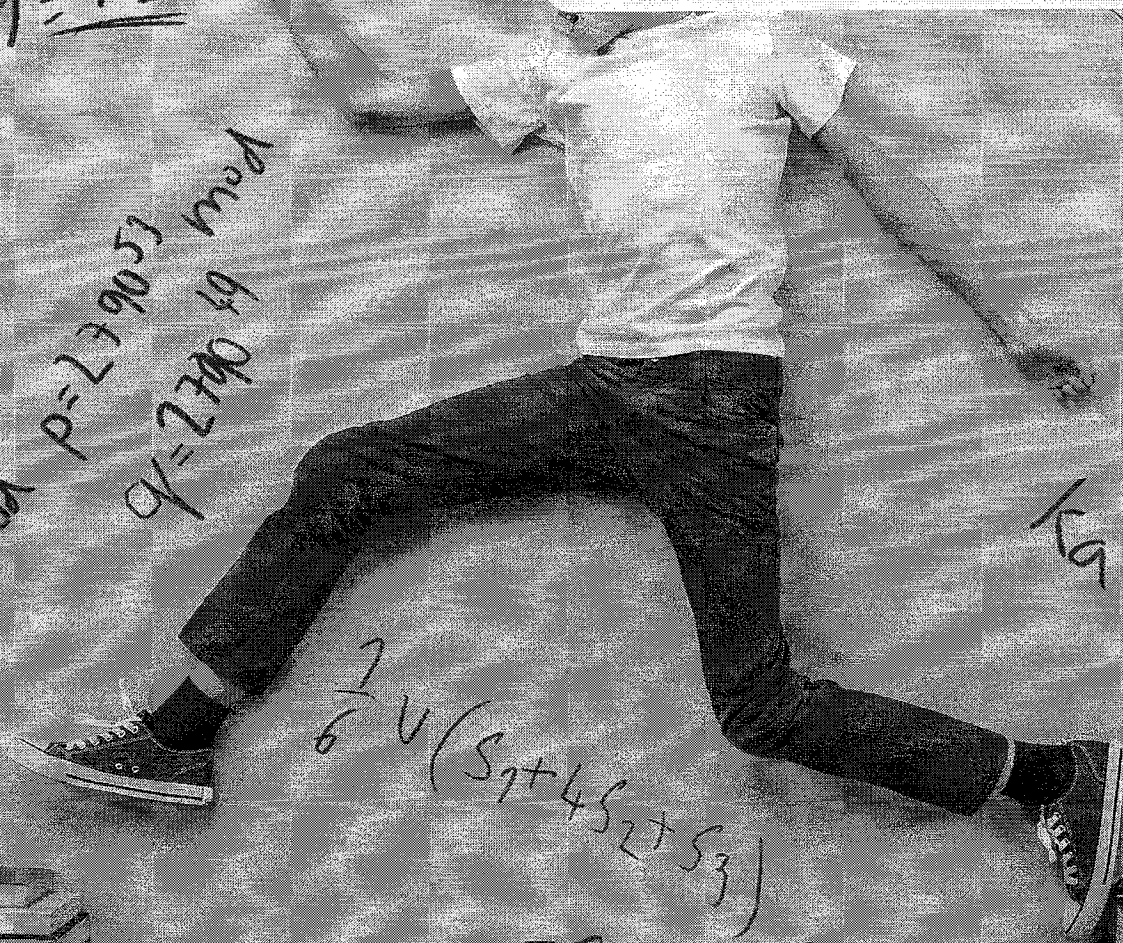 p=2790^53 mod
q=2790^49
Ka
1/6 v(S1+4S2+S3)